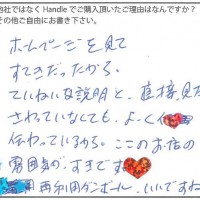 他社ではなく Handle でご購入頂いたご理由はなんですか?
その他ご自由にお書き下さい。
ホームページを見て
すてきだったから。
ていねいな説明と、直接、見た
さわっていなくても、よーく
伝わっているから。ここのお店の
雰囲気が、すきです
再利用ダンボール、いいですね